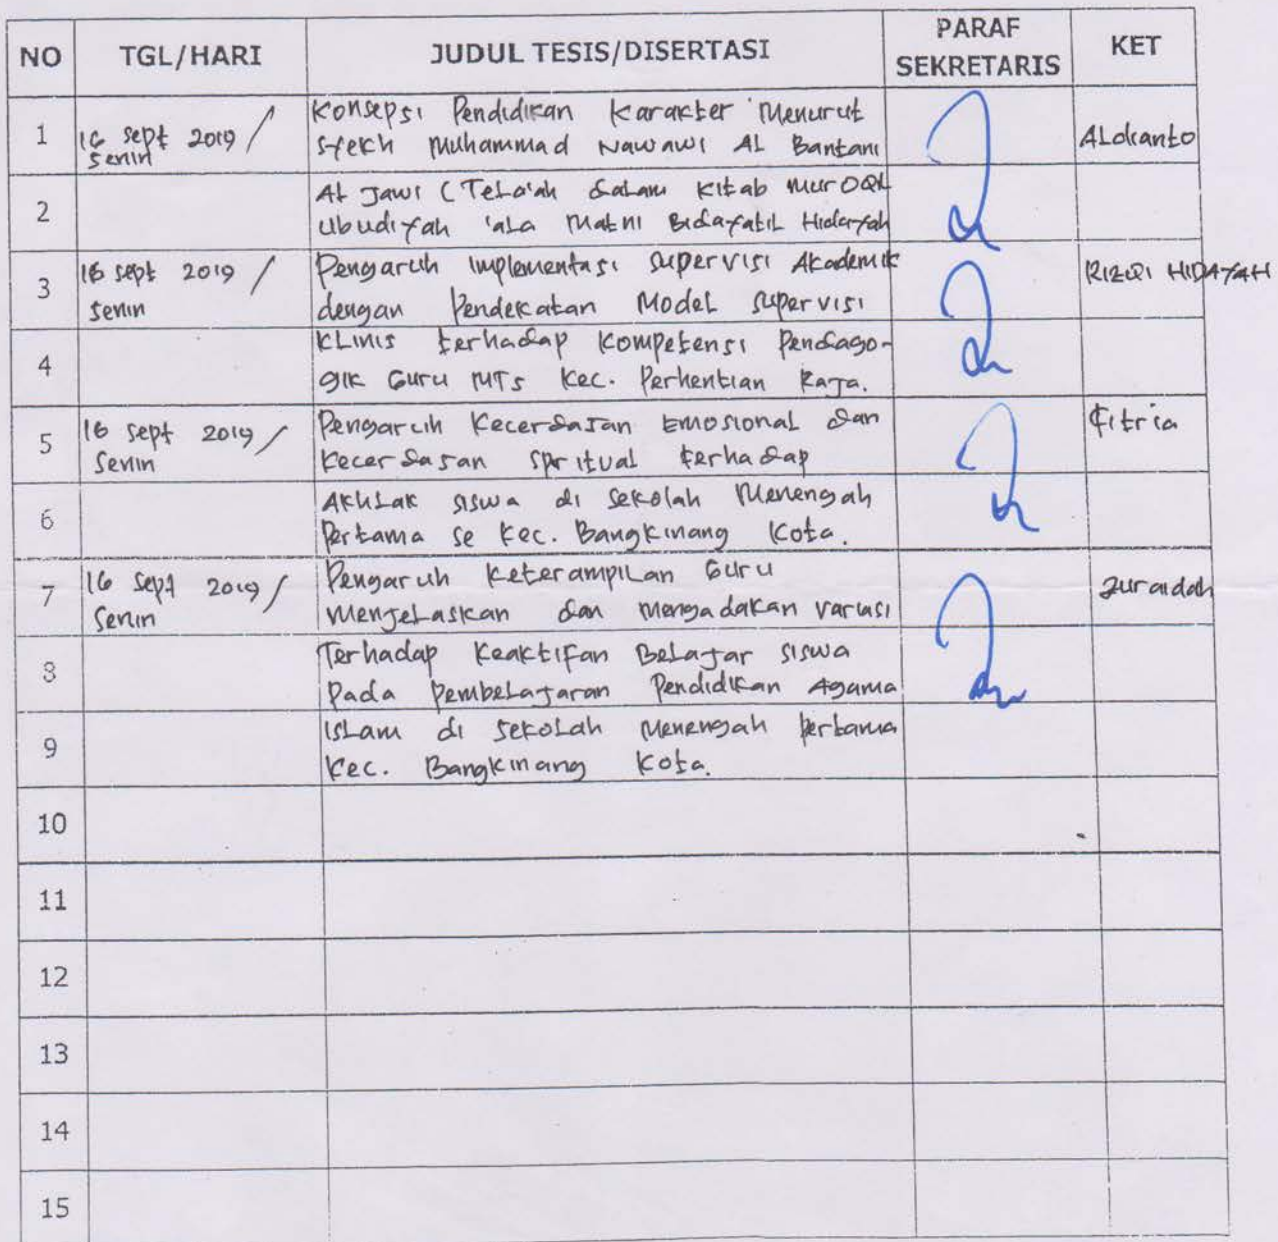 NO TGL/HARI JUDUL TESIS/DISERTASI PARAF SEKRETARIS KET
1 16 Sept 2019 / Senin Konsepsi Pendidikan Karakter Menurut Aldianto
Syekh Muhammad Nawawi Al Bantani
2 Al Jawi (Tela'ah dalam Kitab Muroqil
Ubudiyah 'ala Matni Bidayatil Hidayah
3 16 Sept 2019 / Senin Pengaruh Implementasi Supervisi Akademik RIZQI HIDAYAH
dengan Pendekatan Model Supervisi
4 Klinis terhadap Kompetensi Pendago-
gik Guru MTs Kec. Perhentian Raja.
5 16 Sept 2019 / Senin Pengaruh Kecerdasan Emosional dan Fitria
Kecerdasan Spritual terhadap
6 Akhlak siswa di Sekolah Menengah
Pertama se Kec. Bangkinang Kota.
7 16 Sept 2019 / Senin Pengaruh Keterampilan Guru Zuraidah
Menjelaskan dan Mengadakan variasi
8 Terhadap Keaktifan Belajar siswa
Pada Pembelajaran Pendidikan Agama
9 Islam di Sekolah Menengah Pertama
Kec. Bangkinang Kota.
10
11
12
13
14
15